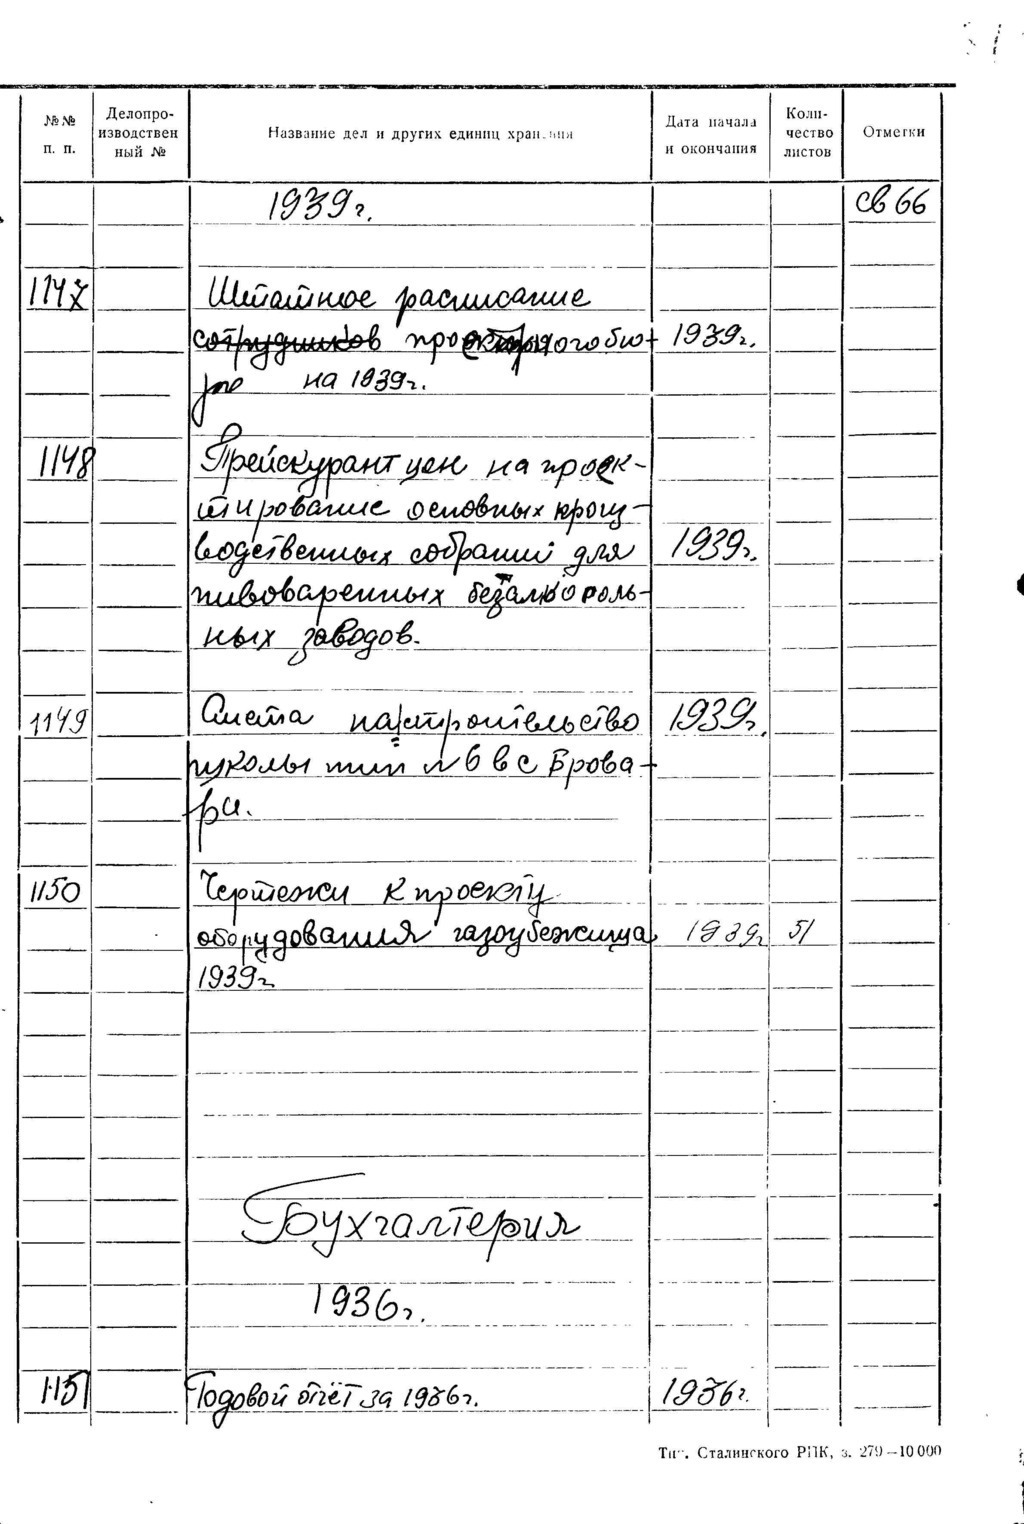 №№ п. п.
Делопро-
изводствен
ный №
Название дел и других единиц хранения
Дата начала
и окончания
Коли-
чество
листов
Отметки
1939г.
св 66
1147
Штатное расписание
сотрудников проектного бю- 1939г.
ро на 1939г.
1148
Прейскурант цен на проек-
тирование основных произ-
водственных собраний для 1939г.
пивоваренных безалкороль-
ных заводов.
1149 Смета на строительство 1939г.
школы тип №6 в с Брова-
ри.
1150 Чертежи к проекту
оборудования газоубежища 1939г 51
1939г
Бухгалтерия
1936г.
1151 Годовой отчёт за 1936г. 1936г.
Тип. Сталинского РПК, з. 279—10 000